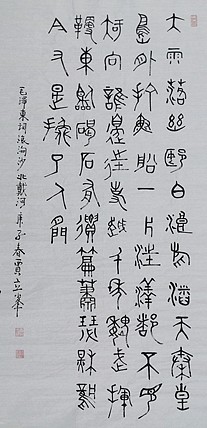 大雨落幽郾白浪滔天秦皇
島外打魚船一片汪洋都不見
知向誰邊往事越千年魏武揮
鞭東臨碣石有遺篇蕭瑟秋風
今又是換了人間
毛澤東詞浪淘沙北戴河庚子春賈立